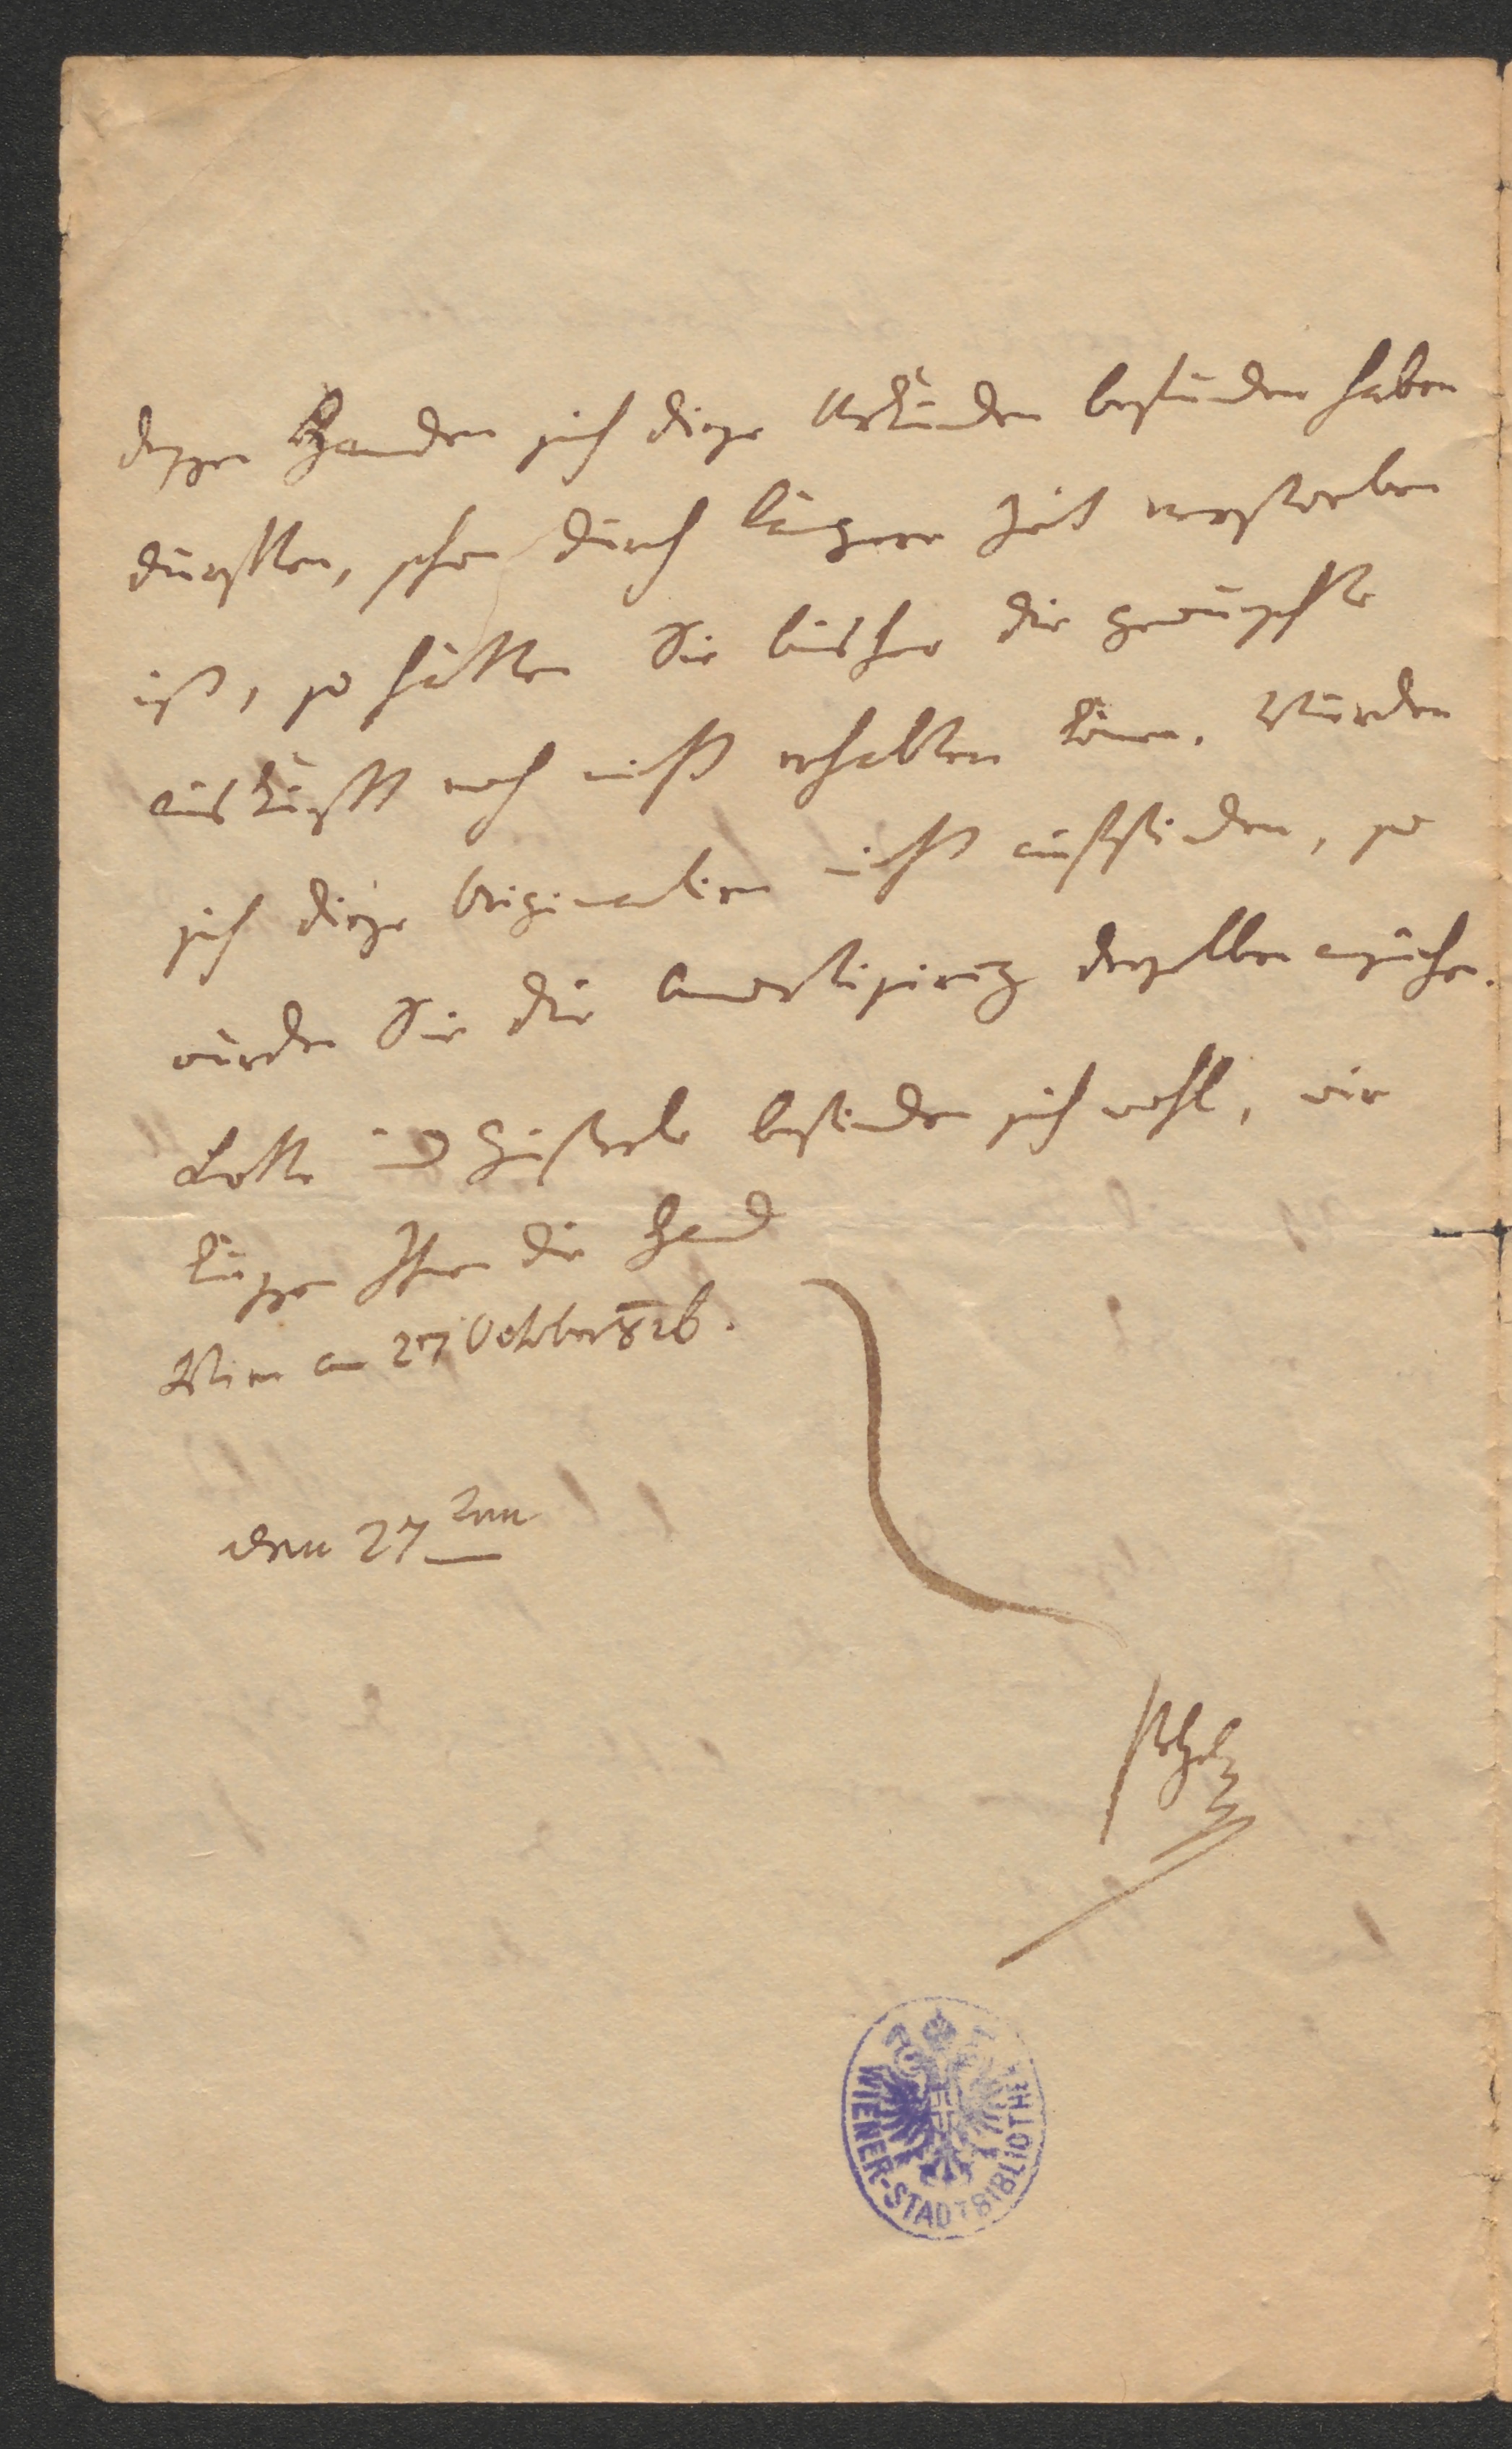 dessen Handen sich diese Urkunden befunden haben
dürften, schon durch längere Zeit verstorben
ist, so hätten Sie bisher die gewünschte
auskunft noch nicht erhalten können. Würden
sich diese Originalien nicht auffinden, so
würden Sie die Amortisirung derselben ansuchen.
Lotte und befinden sich wohl, wir
küssen Ihnen die Hand
Wien am 27 October 826.
den 27ten
WIENER-STADTBIBLIOTHEK